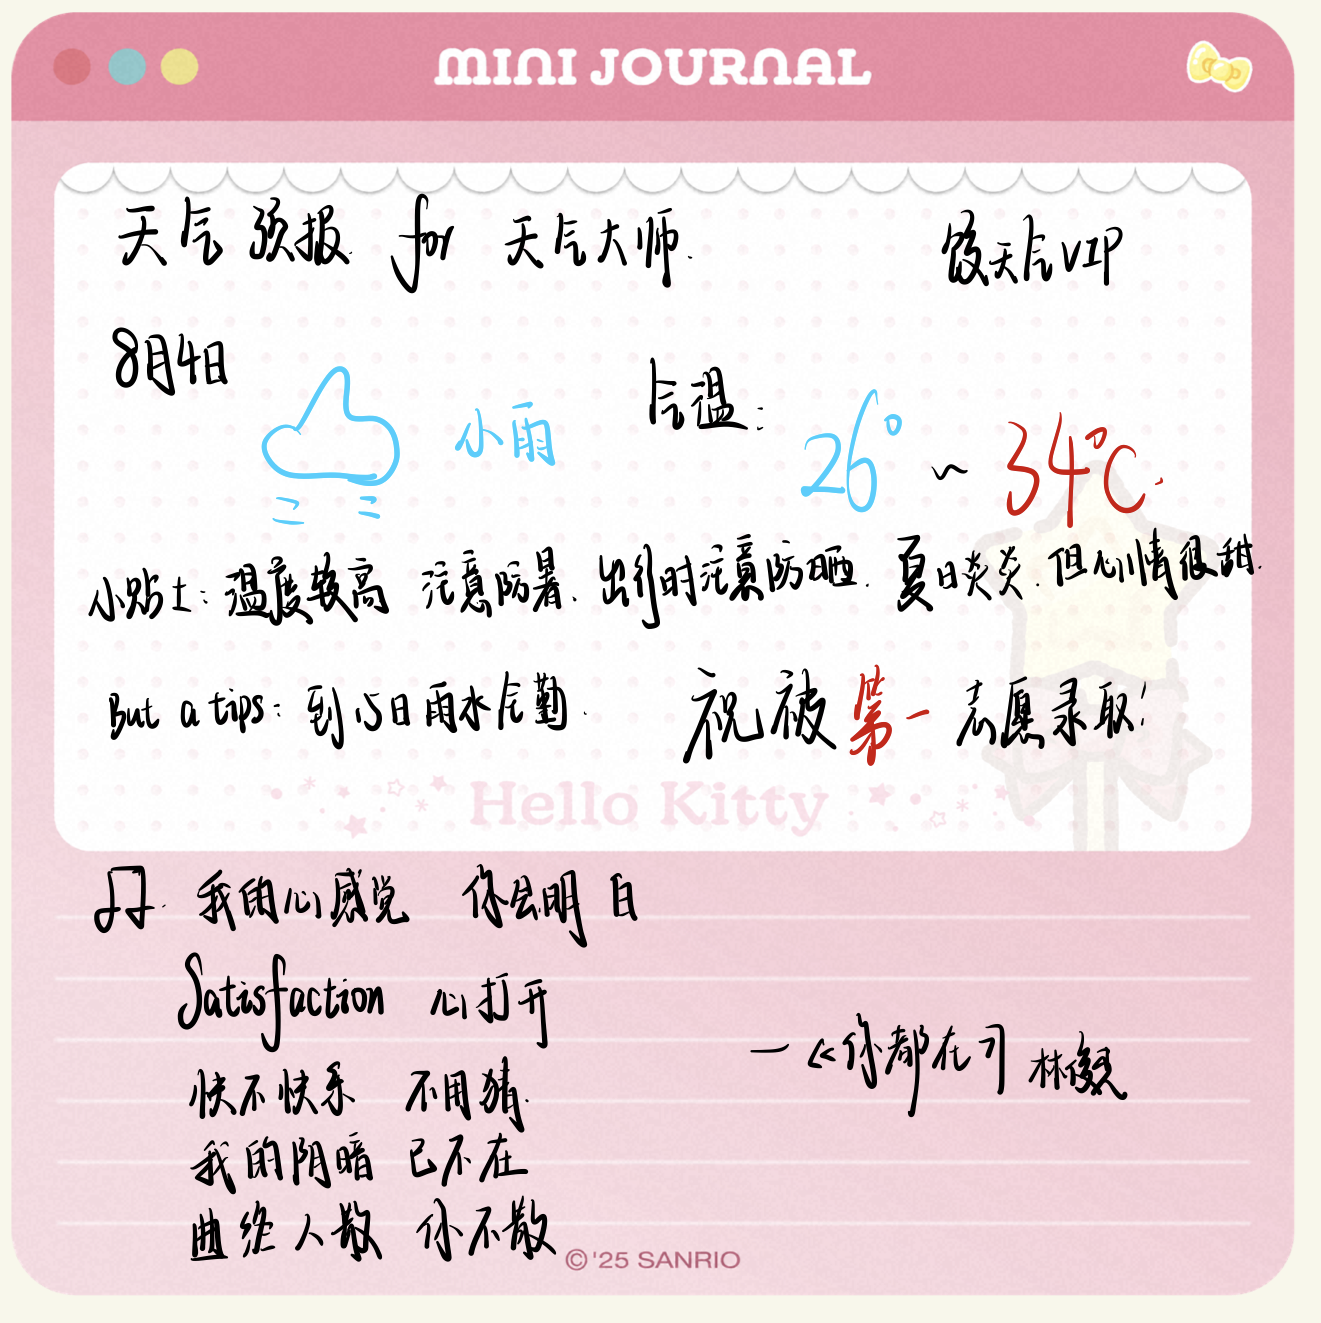 MINI JOURNAL
天气预报 for 天气大师.
天气VIP
8月4日
小雨
气温:
26° ~ 34℃.
小贴士: 温度较高 注意防暑. 出行时注意防晒. 夏日炎炎. 但心情很甜.
But a tips: 到15日雨水气勤.
祝被第一志愿录取!
Hello Kitty
我的心感觉 你会明白
Satisfaction 心打开
快不快乐 不用猜.
我的阴暗 已不在
曲终人散 你不散
—《你都在》 林俊杰
©'25 SANRIO